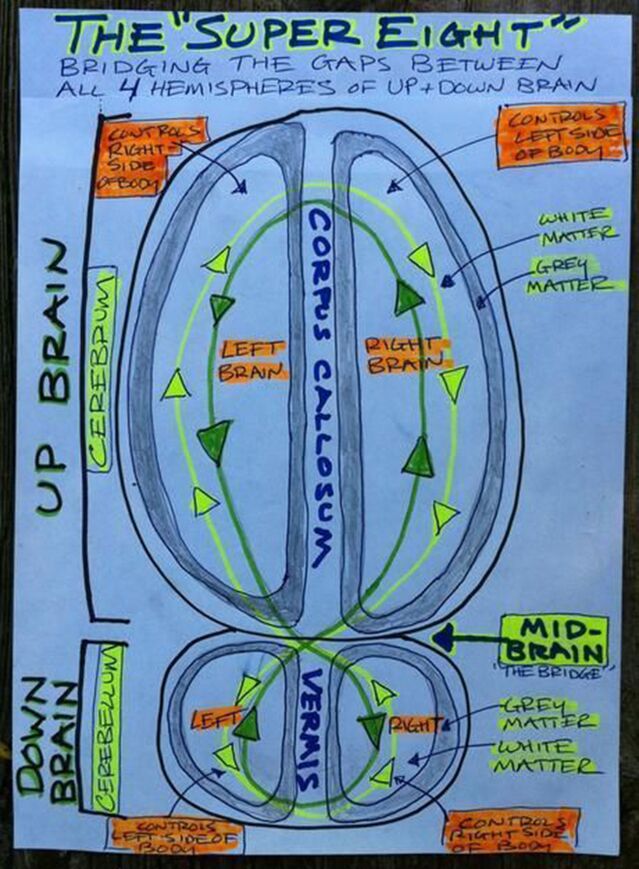 THE "SUPER EIGHT"
BRIDGING THE GAPS BETWEEN
ALL 4 HEMISPHERES OF UP + DOWN BRAIN
CONTROLS
RIGHT
SIDE
OF BODY
CONTROLS
LEFT SIDE
OF BODY
WHITE
MATTER
GREY
MATTER
UP BRAIN
CEREBRUM
LEFT
BRAIN
CORPUS CALLOSUM
RIGHT
BRAIN
MID-
BRAIN
"THE BRIDGE"
DOWN
BRAIN
CEREBELLUM
LEFT
VERMIS
RIGHT
GREY
MATTER
WHITE
MATTER
CONTROLS
LEFT SIDE OF
BODY
CONTROLS
RIGHT SIDE
OF BODY